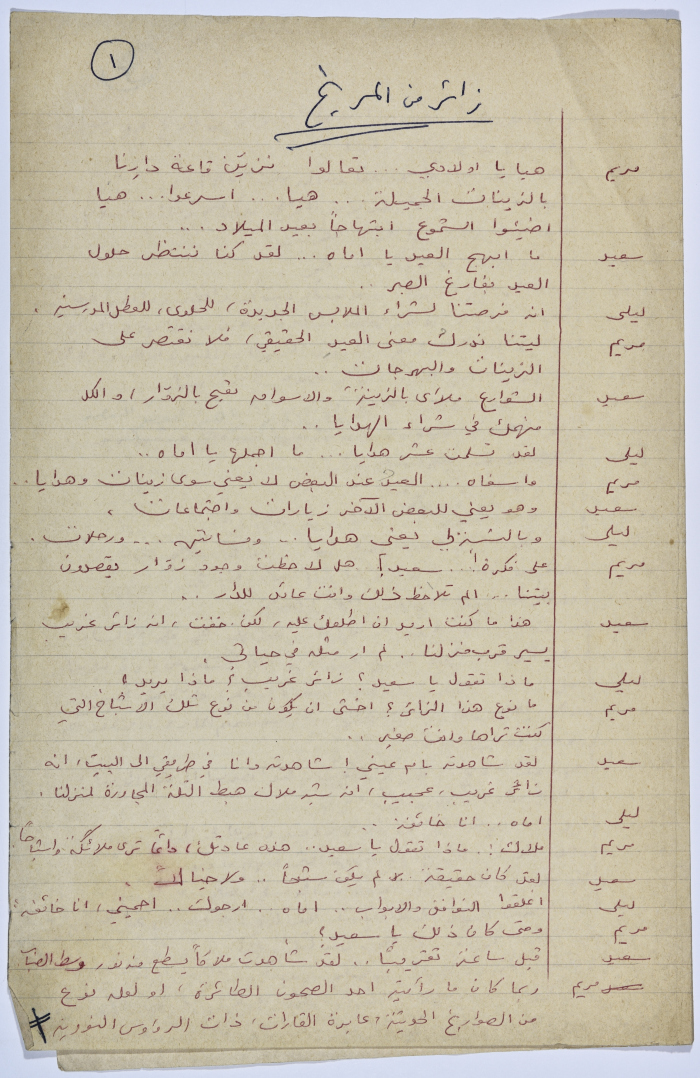 ١
زائر من المريخ
مريم هيا يا اولادي ... تعالوا نزيّن قاعة دارنا
بالزينات الجميلة ... هيا ... اسرعوا ... هيا
اضيئوا الشموع ابتهاجاً بعيد الميلاد ...
سعيد ما ابهج العيد يا اماه ... لقد كنا ننتظر حلول
العيد بفارغ الصبر ..
ليلى انه فرصتنا لشراء الملابس الجديدة، للحلوى، للعطل المدرسية .
مريم ليتنا ندرك معنى العيد الحقيقي، فلا نقتصر على
الزينات والبهرجات ..
سعيد الشوارع ملأى بالزينة والاسواق تعج بالزوّار، والكل
منهمك في شراء الهدايا ..
ليلى لقد تسلمت عشر هدايا ... ما اجملها يا اماه ..
مريم وا اسفاه .... العيد عند البعض لا يعني سوى زينات وهدايا ..
سعيد وهو يعني للبعض الآخر زيارات واجتماعات .
ليلى وبالنسبة لي يعني هدايا .. وفساتين ... ورحلات .
مريم على فكرة! .. سعيد؟ هل لاحظت وجود زوّار يقصدون
بيتنا .. الم تلاحظ ذلك وانت عائد للدار ..
سعيد هذا ما كنت اريد ان اطلعك عليه، لكن خفت، انه زائر غريب
يسير قرب منزلنا .. لم ار مثله في حياتي .
ليلى ماذا تقول يا سعيد؟ زائر غريب؟ ماذا يريد؟
مريم ما نوع هذا الزائر؟ اخشى ان يكون من نوع تلك الاشباح التي
كنت تراها وانت صغير ..
سعيد لقد شاهدته بام عيني! شاهدته وانا في طريقي الى البيت، انه
زائر غريب، عجيب، انه شبه ملاك هبط التلة المجاورة لمنزلنا .
ليلى اماه .. انا خائفة ..
مريم ملاك! .. ماذا تقول يا سعيد .. هذه عادتك، دائماً ترى ملائكة واشباحاً
سعيد لقد كان حقيقة .. لم يكن شبحاً .. ولا خيالاً .
ليلى اغلقوا النوافذ والابواب .. اماه .. ارجوك .. احميني، انا خائفة
مريم ومتى كان ذلك يا سعيد؟
سعيد قبل ساعة تقريباً .. لقد شاهدت ملاكاً يسطع منه نور وسط الضباب
مريم ربما كان ما رأيته احد الصحون الطائرة، او لعله نوع
من الصواريخ الحديثة، عابرة القارات، ذات الرؤوس النووية